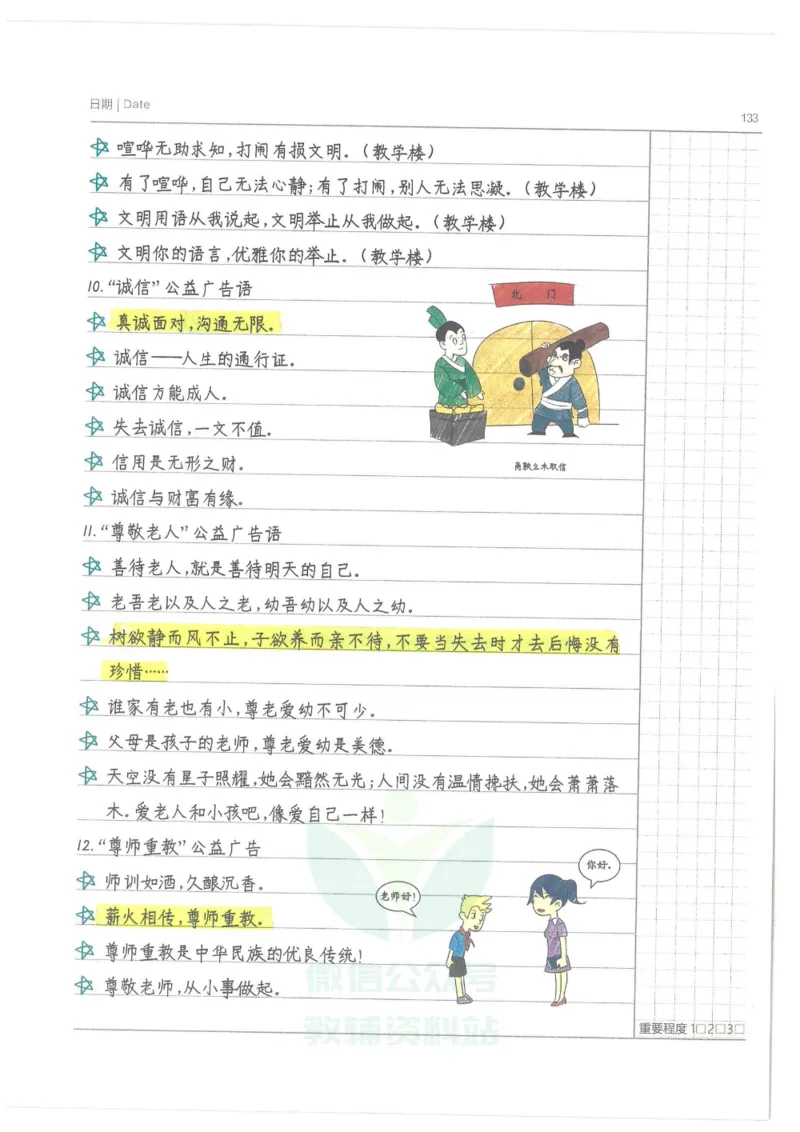 日期 | Date
133
喧哗无助求知,打闹有损文明。(教学楼)
有了喧哗,自己无法心静;有了打闹,别人无法思凝。(教学楼)
文明用语从我说起,文明举止从我做起。(教学楼)
文明你的语言,优雅你的举止。(教学楼)
10.“诚信”公益广告语
北 门
真诚面对,沟通无限。
诚信——人生的通行证。
诚信方能成人。
失去诚信,一文不值。
信用是无形之财。
商鞅立木取信
诚信与财富有缘。
11.“尊敬老人”公益广告语
善待老人,就是善待明天的自己。
老吾老以及人之老,幼吾幼以及人之幼。
树欲静而风不止,子欲养而亲不待,不要当失去时才去后悔没有
珍惜……
谁家有老也有小,尊老爱幼不可少。
父母是孩子的老师,尊老爱幼是美德。
天空没有星子照耀,她会黯然无光;人间没有温情搀扶,她会萧萧落
木。爱老人和小孩吧,像爱自己一样!
12.“尊师重教”公益广告
你好。
师训如酒,久酿沉香。
老师好!
薪火相传,尊师重教。
尊师重教是中华民族的优良传统!
尊敬老师,从小事做起。
微信公众号
教辅资料站
重要程度 1□2□3□